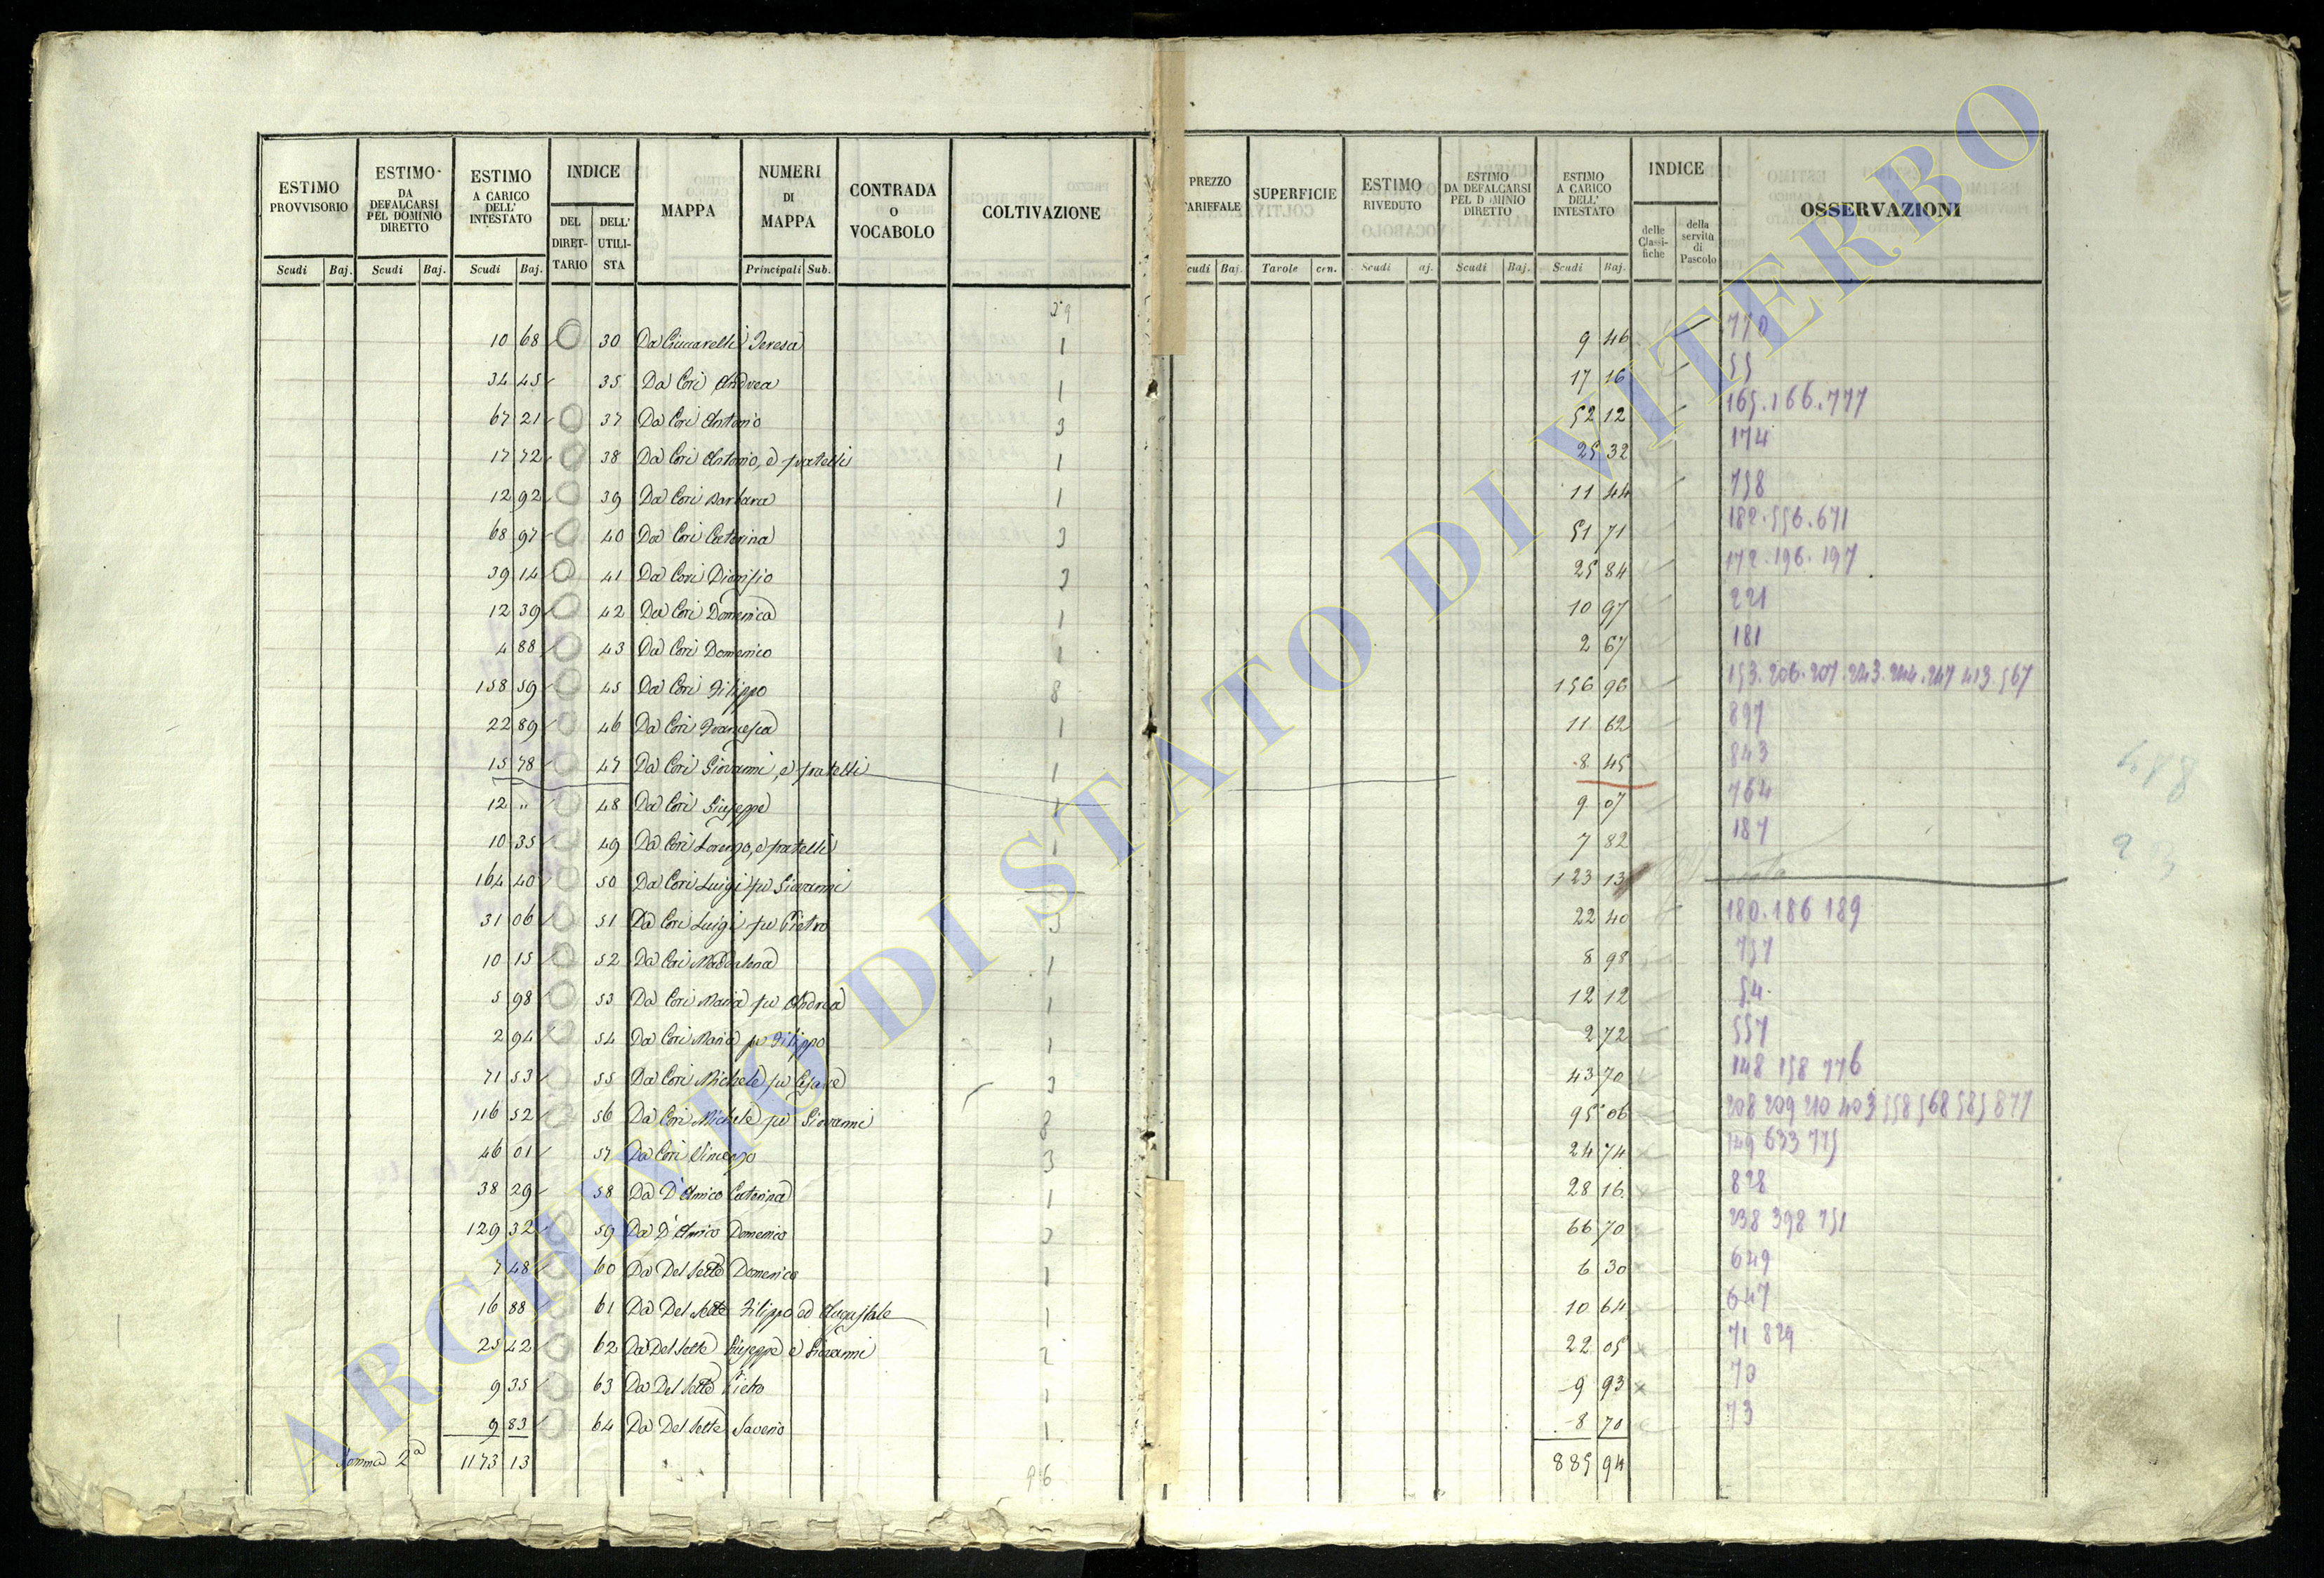 ESTIMO PROVVISORIO Scudi Baj.
ESTIMO DA DEFALCARSI PEL DOMINIO DIRETTO Scudi Baj.
ESTIMO A CARICO DELL' INTESTATO Scudi Baj.
INDICE DEL DIRETTARIO DELL' UTILISTA
MAPPA
NUMERI DI MAPPA Principali Sub.
CONTRADA O VOCABOLO
COLTIVAZIONE
PREZZO TARIFFALE Scudi Baj.
SUPERFICIE Tavole cen.
ESTIMO RIVEDUTO Scudi aj.
ESTIMO DA DEFALCARSI PEL DOMINIO DIRETTO Scudi Baj.
ESTIMO A CARICO DELL' INTESTATO Scudi Baj.
INDICE delle Classifiche della servitù di Pascolo
OSSERVAZIONI
10 68 30 Da Ciuccarelli Teresa 1 9 46 770
34 45 35 Da Cori Andrea 1 17 16 55
67 21 37 Da Cori Antonio 3 52 12 165.166.777
17 72 38 Da Cori Antonio, e fratelli 1 25 32 174
12 92 39 Da Cori Barbara 1 11 44 758
68 97 40 Da Cori Caterina 3 51 71 182.556.671
39 14 41 Da Cori Dionisio 3 25 84 172.196.197
12 39 42 Da Cori Domenica 1 10 97 221
4 88 43 Da Cori Domenico 1 2 67 181
158 59 45 Da Cori Filippo 8 156 96 153.206.207.243.244.247 413.567
22 89 46 Da Cori Francesca 1 11 62 897
15 78 47 Da Cori Giovanni, e fratelli 1 8 45 843
12 " 48 Da Cori Giuseppe 1 9 07 764
10 35 49 Da Cori Lorenzo, e fratelli 1 7 82 187
164 40 50 Da Cori Luigi fu Giovanni 123 13
31 06 51 Da Cori Luigi fu Pietro 3 22 40 180.186 189
10 15 52 Da Cori Maddalena 1 8 98 757
5 98 53 Da Cori Maria fu Andrea 1 12 12 54
2 94 54 Da Cori Maria fu Filippo 1 2 72 557
71 53 55 Da Cori Michele fu Cesare 3 43 70 148 158 776
116 52 56 Da Cori Michele fu Giovanni 8 95 06 208 209 210 403 558 568 585 877
46 01 57 Da Cori Vincenzo 3 24 74 149 633 775
38 29 58 Da D'Amico Caterina 1 28 16 828
129 32 59 Da D'Amico Domenico 3 66 70 238 398 751
7 48 60 Da Del Sette Domenico 1 6 30 649
16 88 61 Da Del Sette Filippo ed Augustale 1 10 64 647
25 42 62 Da Del Sette Giuseppe e Giovanni 2 22 05 71 829
9 35 63 Da Del Sette Pietro 1 9 93 70
9 83 64 Da Del Sette Saverio 1 8 70 73
Somma 2a 1173 13 96 885 94
ARCHIVIO DI STATO DI VITERBO